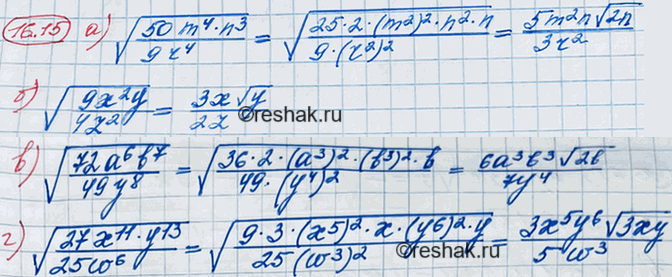 16.15 а) √(50 m⁴·n³ / 9 r⁴) = √(25·2·(m²)²·n²·n / 9·(r²)²) = 5m²n√2n / 3r²
б) √(9x²y / 4z²) = 3x√y / 2z
©reshak.ru
в) √(72a⁶b⁷ / 49y⁸) = √(36·2·(a³)²·(b³)²·b / 49·(y⁴)²) = 6a³b³√2b / 7y⁴
г) √(27x¹¹·y¹³ / 25ω⁶) = √(9·3·(x5)²·x·(y⁶)²·y / 25(ω³)²) = 3x⁵y⁶√3xy / 5ω³